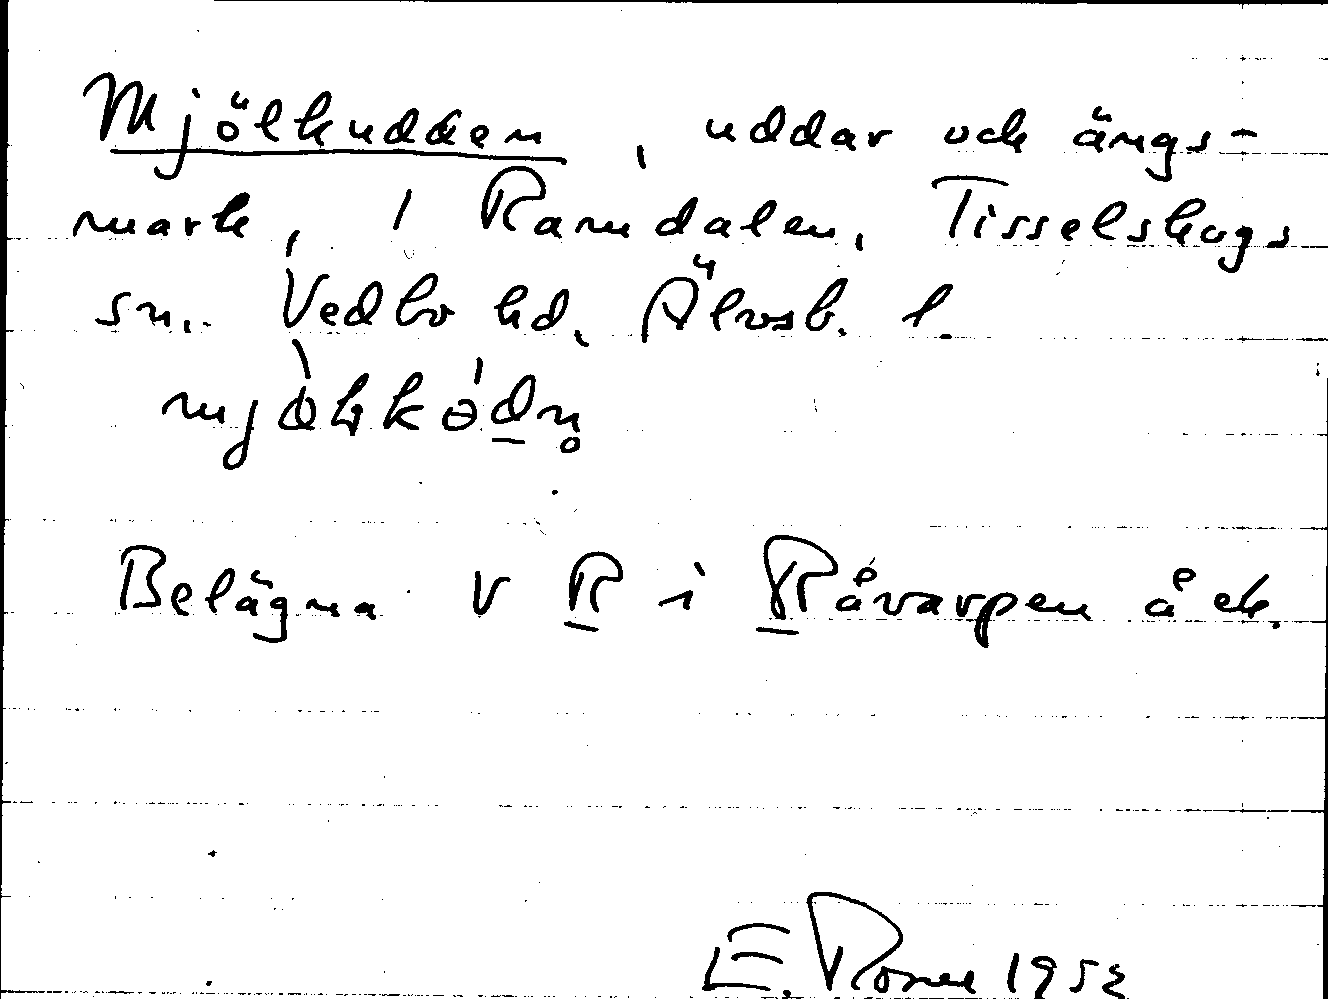 Mjölkudden, uddar och ängs-
mark, 1 Ramdalen, Tisselskogs
sn. Vedbo hd. Älvsb. l.
Belägna V R i Råvarpen å ek.
E. 1952